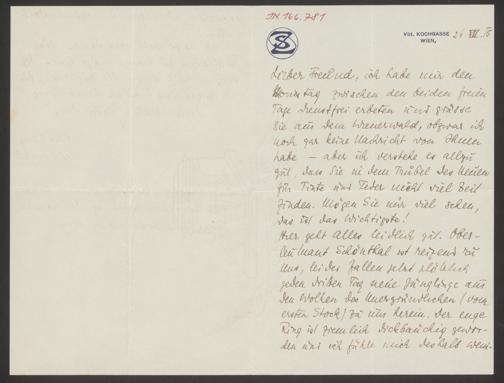 IN 166.781
SZ
VIII. KOCHGASSE
WIEN, 26 VII. 15
Lieber Freund, ich habe mir den
Montag zwischen den beiden freien
Tagen dienstfrei erbeten und grüsse
Sie aus dem Wienerwald, obzwar ich
noch gar keine Nachricht von Ihnen
habe – aber ich verstehe es allzu
gut, dass Sie in dem Trubel des Neuen
für Tinte und Feder nicht viel Zeit
finden. Mögen Sie nur viel sehen,
das ist das Wichtigste!
Hier geht alles leidlich gut. Ober-
leutnant Schönthal ist reizend zu
uns, leider fallen jetzt plötzlich
jeden dritten Tag neue Jünglinge aus
den Wolken des Unergründlichen (vom
ersten Stock) zu uns herein. Der enge
Ring ist ziemlich dickbauchig gewor-
den und ich fühle mich deshalb weni-